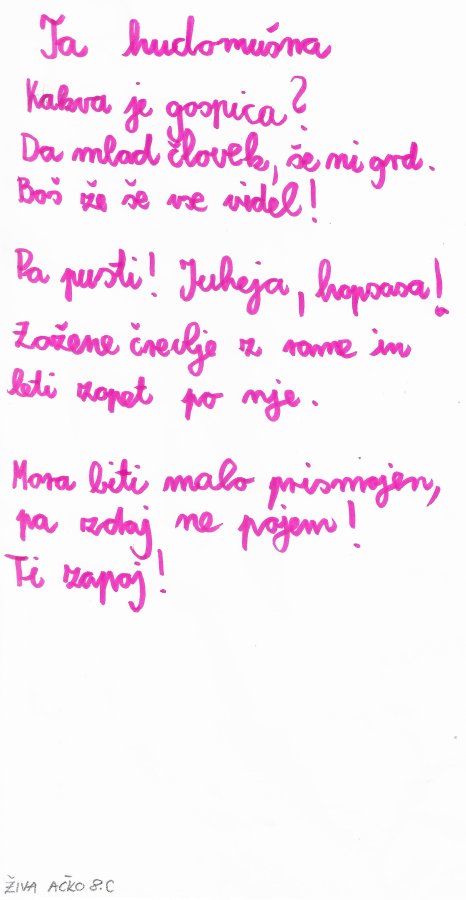 Ta hudomušna
Kakva je gospica?
Da mlad človek, še ni grd.
Boš že še vse videl!
Pa pusti! Juheja, hopsasa!
Zažene črevlje z rame in
leti zopet po nje.
Mora biti malo prismojen,
pa zdaj ne pojem!
Ti zapoj!
ŽIVA AČKO 8.C